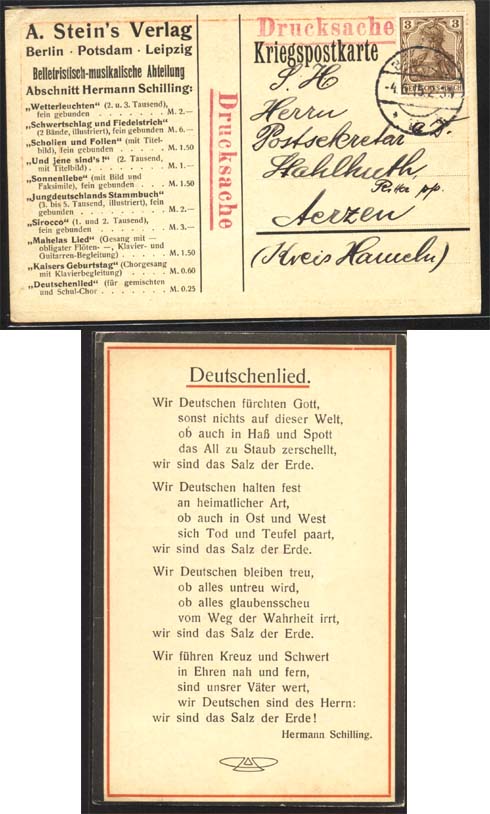 A. Stein's Verlag
Berlin · Potsdam · Leipzig
Belletristisch-musikalische Abteilung
Abschnitt Hermann Schilling:
„Wetterleuchten" (2. u. 3. Tausend),
fein gebunden . . . . . . M. 2.—
„Schwertschlag und Fiedelstrich"
(2 Bände, illustriert), fein gebunden M. 6.—
„Schollen und Follen" (mit Titel-
bild), fein gebunden . . . . . M. 1.50
„Und jene sind's!" (2. Tausend,
mit Titelbild) . . . . . . M. 1.—
„Sonnenliebe" (mit Bild und
Faksimile), fein gebunden . . . . M. 1.50
„Jungdeutschlands Stammbuch"
(3. bis 5. Tausend, illustriert), fein
gebunden . . . . . . . M. 2.—
„Sirocco" (1. und 2. Tausend),
fein gebunden . . . . . . M. 3.—
„Mahelas Lied" (Gesang mit —
obligater Flöten- —, Klavier- und
Guitarren-Begleitung) . . . . M. 1.50
„Kaisers Geburtstag" (Chorgesang
mit Klavierbegleitung) . . . . M. 0.60
„Deutschenlied" (für gemischten
und Schul-Chor . . . . . . M. 0.25
Drucksache
Drucksache
Kriegspostkarte
3 3
DEUTSCHES REICH
S. H
Herrn
Postsekretär
Stahlhuth,
Ritter pp.
Aerzen
(Kreis Hameln)
Deutschenlied.
Wir Deutschen fürchten Gott,
sonst nichts auf dieser Welt,
ob auch in Haß und Spott
das All zu Staub zerschellt,
wir sind das Salz der Erde.
Wir Deutschen halten fest
an heimatlicher Art,
ob auch in Ost und West
sich Tod und Teufel paart,
wir sind das Salz der Erde.
Wir Deutschen bleiben treu,
ob alles untreu wird,
ob alles glaubensscheu
vom Weg der Wahrheit irrt,
wir sind das Salz der Erde.
Wir führen Kreuz und Schwert
in Ehren nah und fern,
sind unsrer Väter wert,
wir Deutschen sind des Herrn:
wir sind das Salz der Erde!
Hermann Schilling.